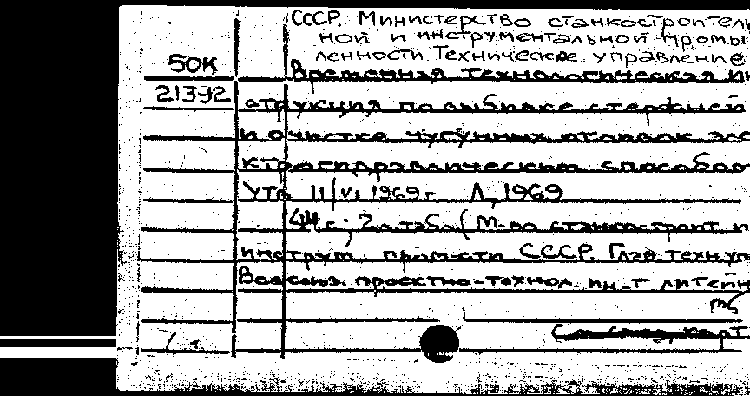 СССР. Министерство станкостроитель
ной и инструментальной промы
ленности. Техническое управление
50К
Временная технологическая ин
21392
струкция по выбивке стержней
и очистке чугунных отливок эле
ктрогидравлическим способом
Утв. 11/VI 1969 г. Л, 1969
44 с; 2 л. таб. (М-во станкостроит и
инструм. пром-сти СССР. Глав техн. уп
Всесоюз. проектно-технол. ин-т литейн